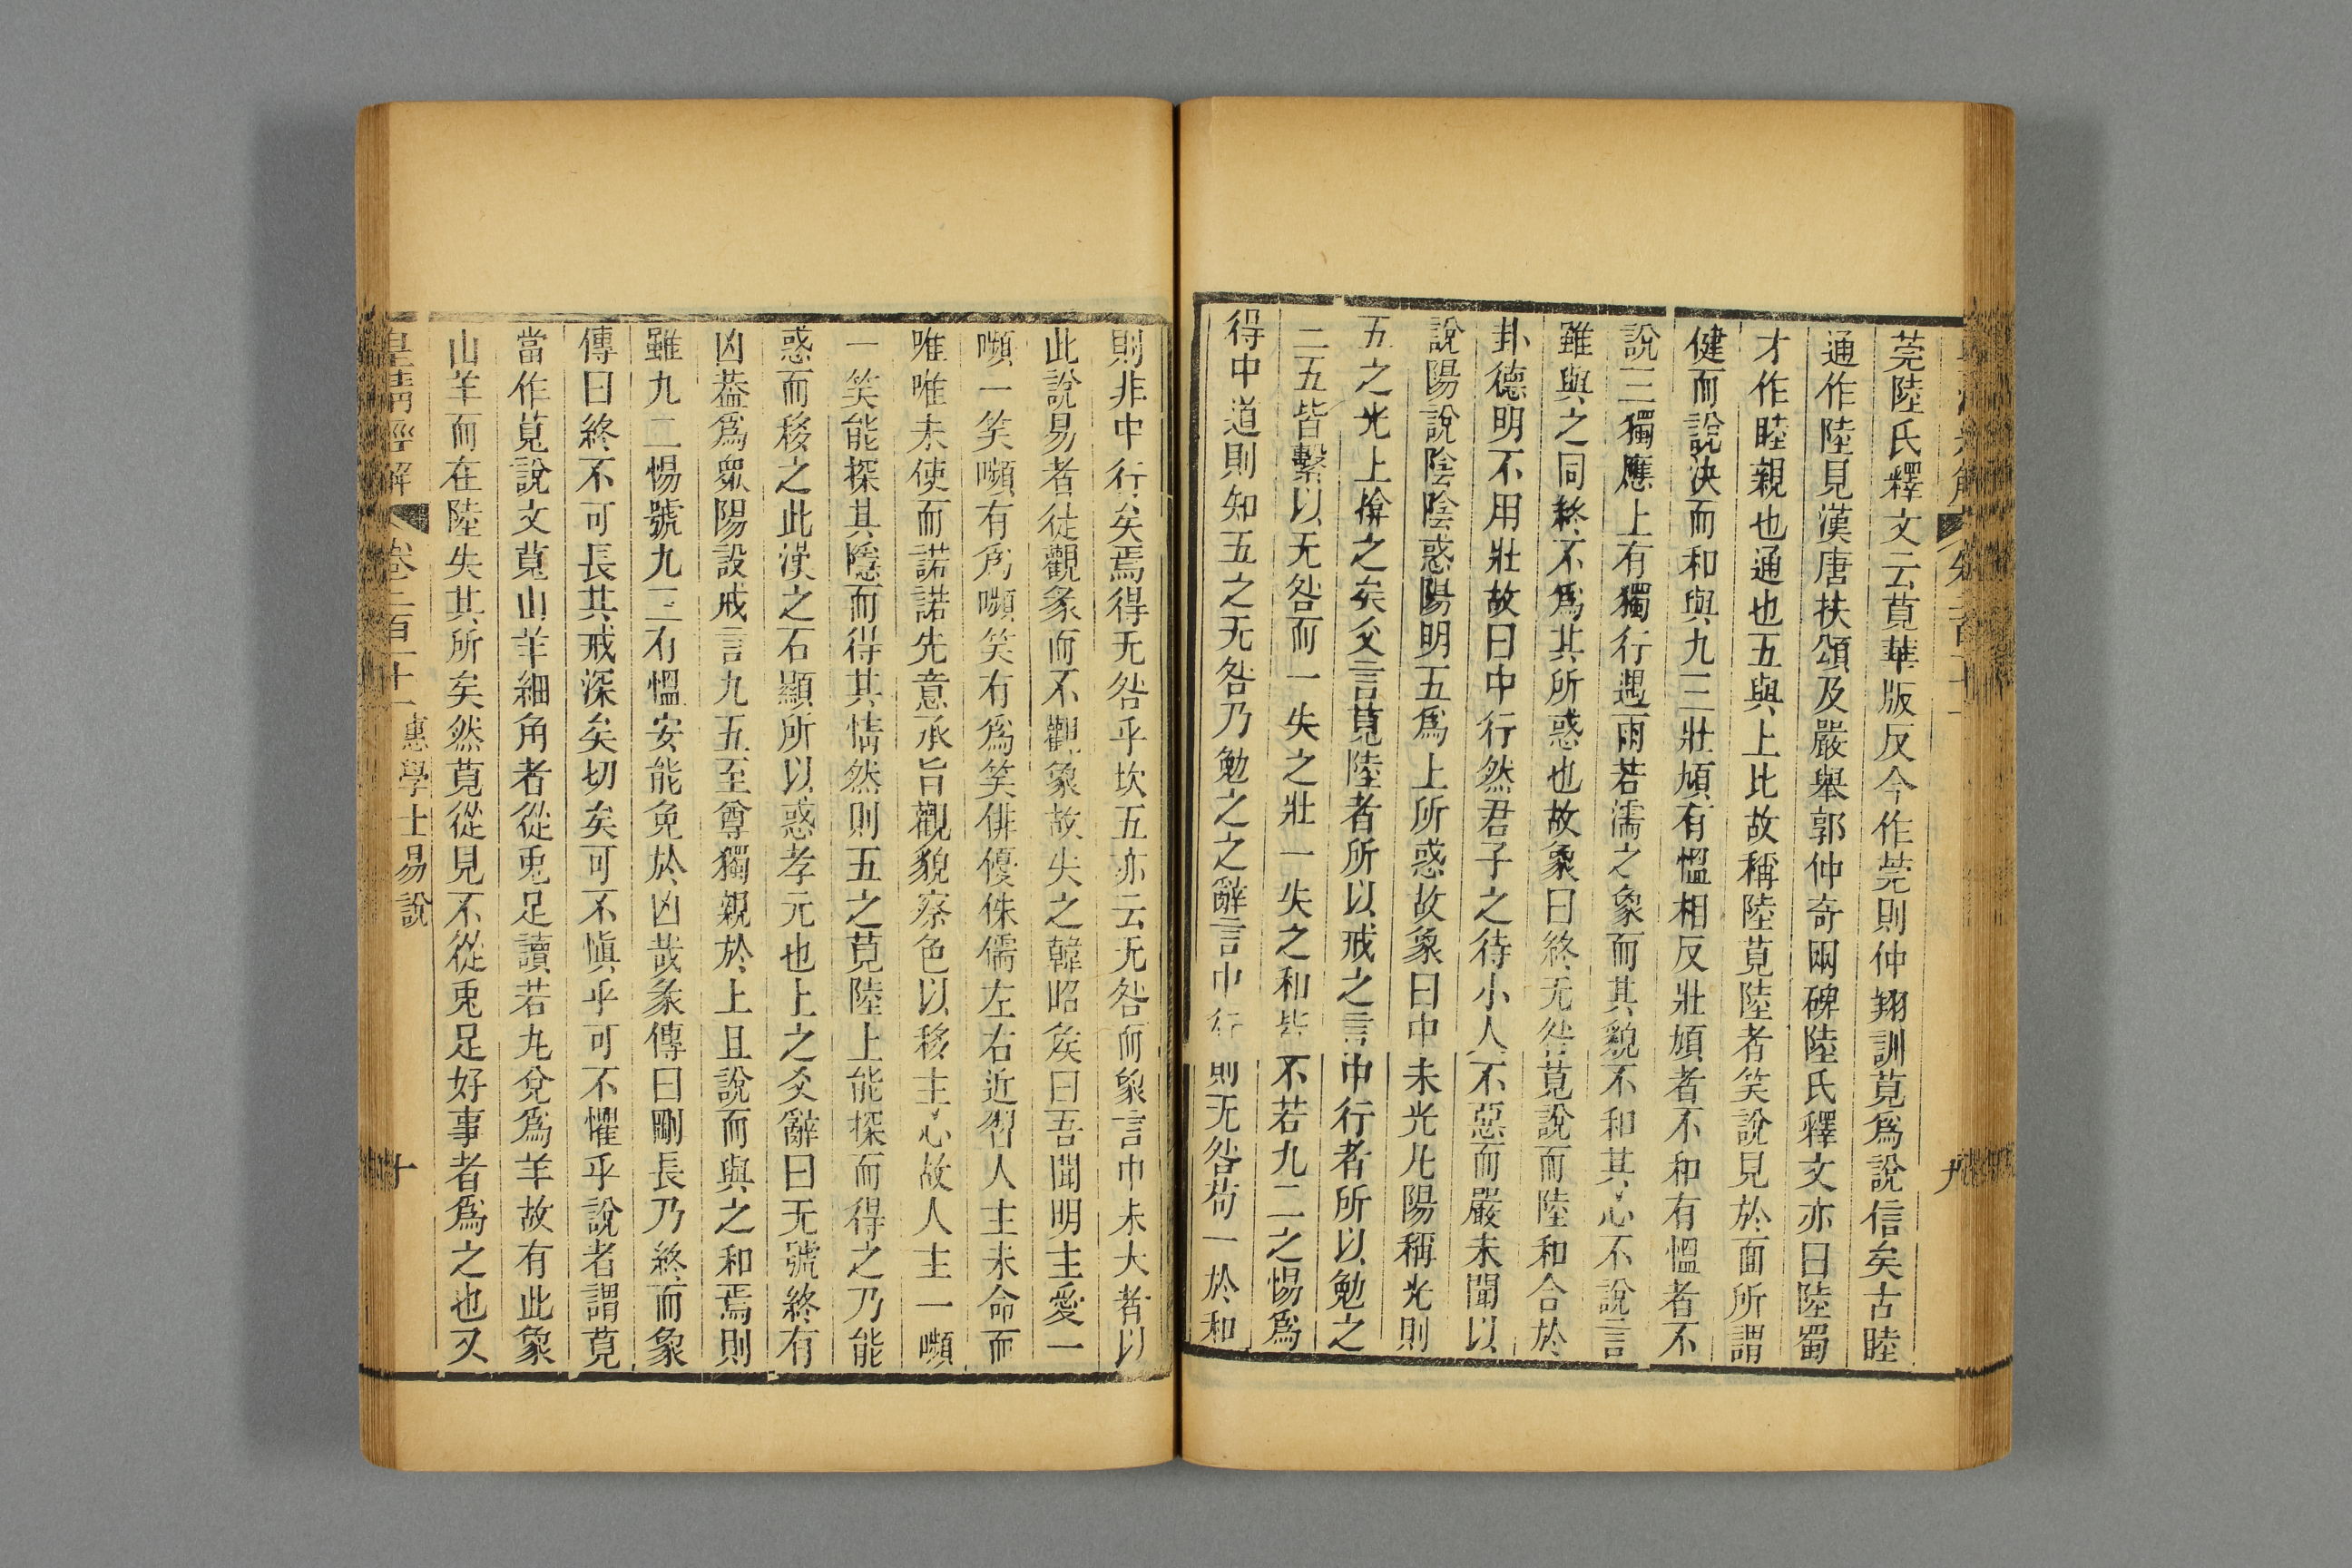 莞陸氏釋文云莧華版反今作莞則仲翔訓莧爲說信矣古睦
通作陸見漢唐扶頌及嚴舉郭仲奇兩碑陸氏釋文亦曰陸蜀
才作睦睦親也通也五與上比故稱陸莧陸者笑說見於面所謂
健而說決而和與九三壯頄有慍相反壯頄者不和有慍者不
說三獨應上有獨行遇雨若濡之象而其貌不和其心不說言
雖與之同終不爲其所惑也故象曰終无咎莧說而陸和合於
卦德明不用壯故曰中行然君子之待小人不惡而嚴未聞以
說陽說陰陰惑陽明五爲上所惑故象曰中未光凡陽稱光則
五之光上揜之矣爻言莧陸者所以戒之言中行者所以勉之
二五皆繫以无咎而一失之壯一失之和皆不若九二之惕爲
得中道則知五之无咎乃勉之之辭言中行則无咎苟一於和
則非中行矣焉得无咎乎坎五亦云无咎而象言中未大者以
此說易者徒觀彖而不觀象故失之韓昭矦曰吾聞明主愛一
嚬一笑嚬有爲嚬笑有爲笑俳優侏儒左右近習人主未命而
唯唯未使而諾諾先意承旨觀貌察色以移主心故人主一嚬
一笑能探其隱而得其情然則五之莧陸上能探而得之乃能
惑而移之此漢之石顯所以惑孝元也上之爻辭曰无號終有
凶葢爲衆陽設戒言九五至尊獨親於上且說而與之和焉則
雖九二惕號九三有慍安能免於凶哉彖傳曰剛長乃終而象
傳曰終不可長其戒深矣切矣可不愼乎可不懼乎說者謂莧
當作萈說文萈山羊細角者從兎足讀若丸兌爲羊故有此象
山羊而在陸失其所矣然莧從見不從兎足好事者爲之也又
皇淸經解 卷二百十一 惠學士易說 十